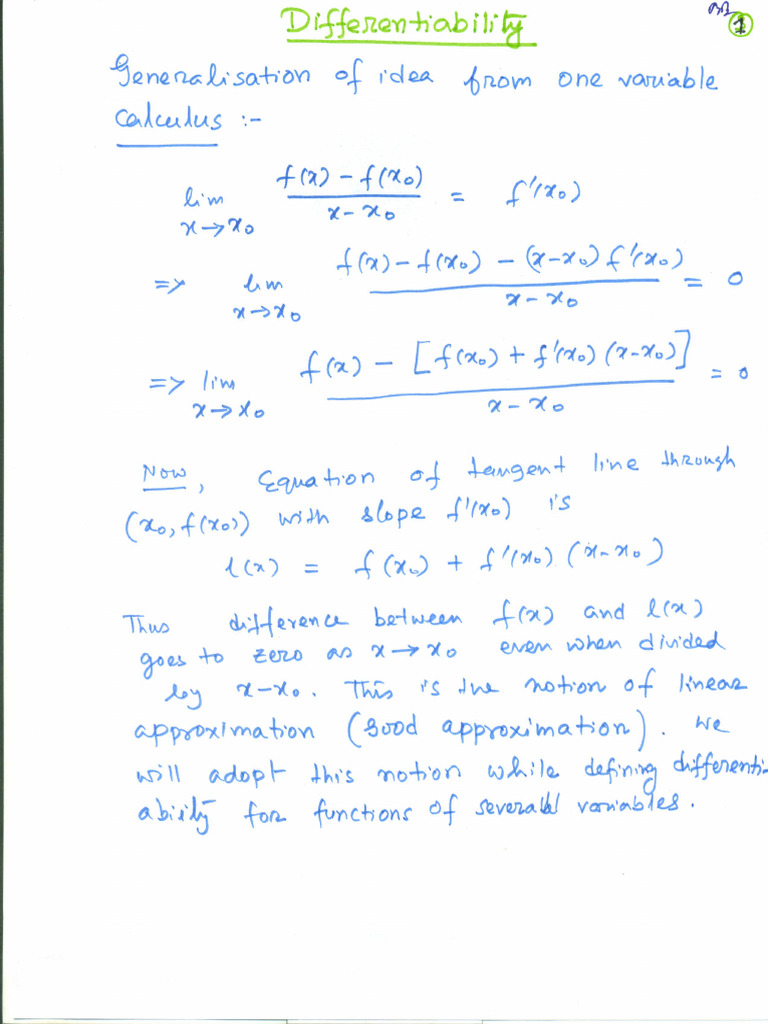 Differentiability
1
Generalisation of idea from one variable
calculus :-
lim x→x₀ (f(x) - f(x₀)) / (x - x₀) = f'(x₀)
=> lim x→x₀ (f(x) - f(x₀) - (x-x₀) f'(x₀)) / (x - x₀) = 0
=> lim x→x₀ (f(x) - [f(x₀) + f'(x₀) (x-x₀)]) / (x - x₀) = 0
Now, Equation of tangent line through
(x₀, f(x₀)) with slope f'(x₀) is
l(x) = f(x₀) + f'(x₀) (x-x₀)
Thus difference between f(x) and l(x)
goes to zero as x→x₀ even when divided
by x-x₀. This is the notion of linear
approximation (good approximation). We
will adopt this notion while defining differenti-
ability for functions of several variables.